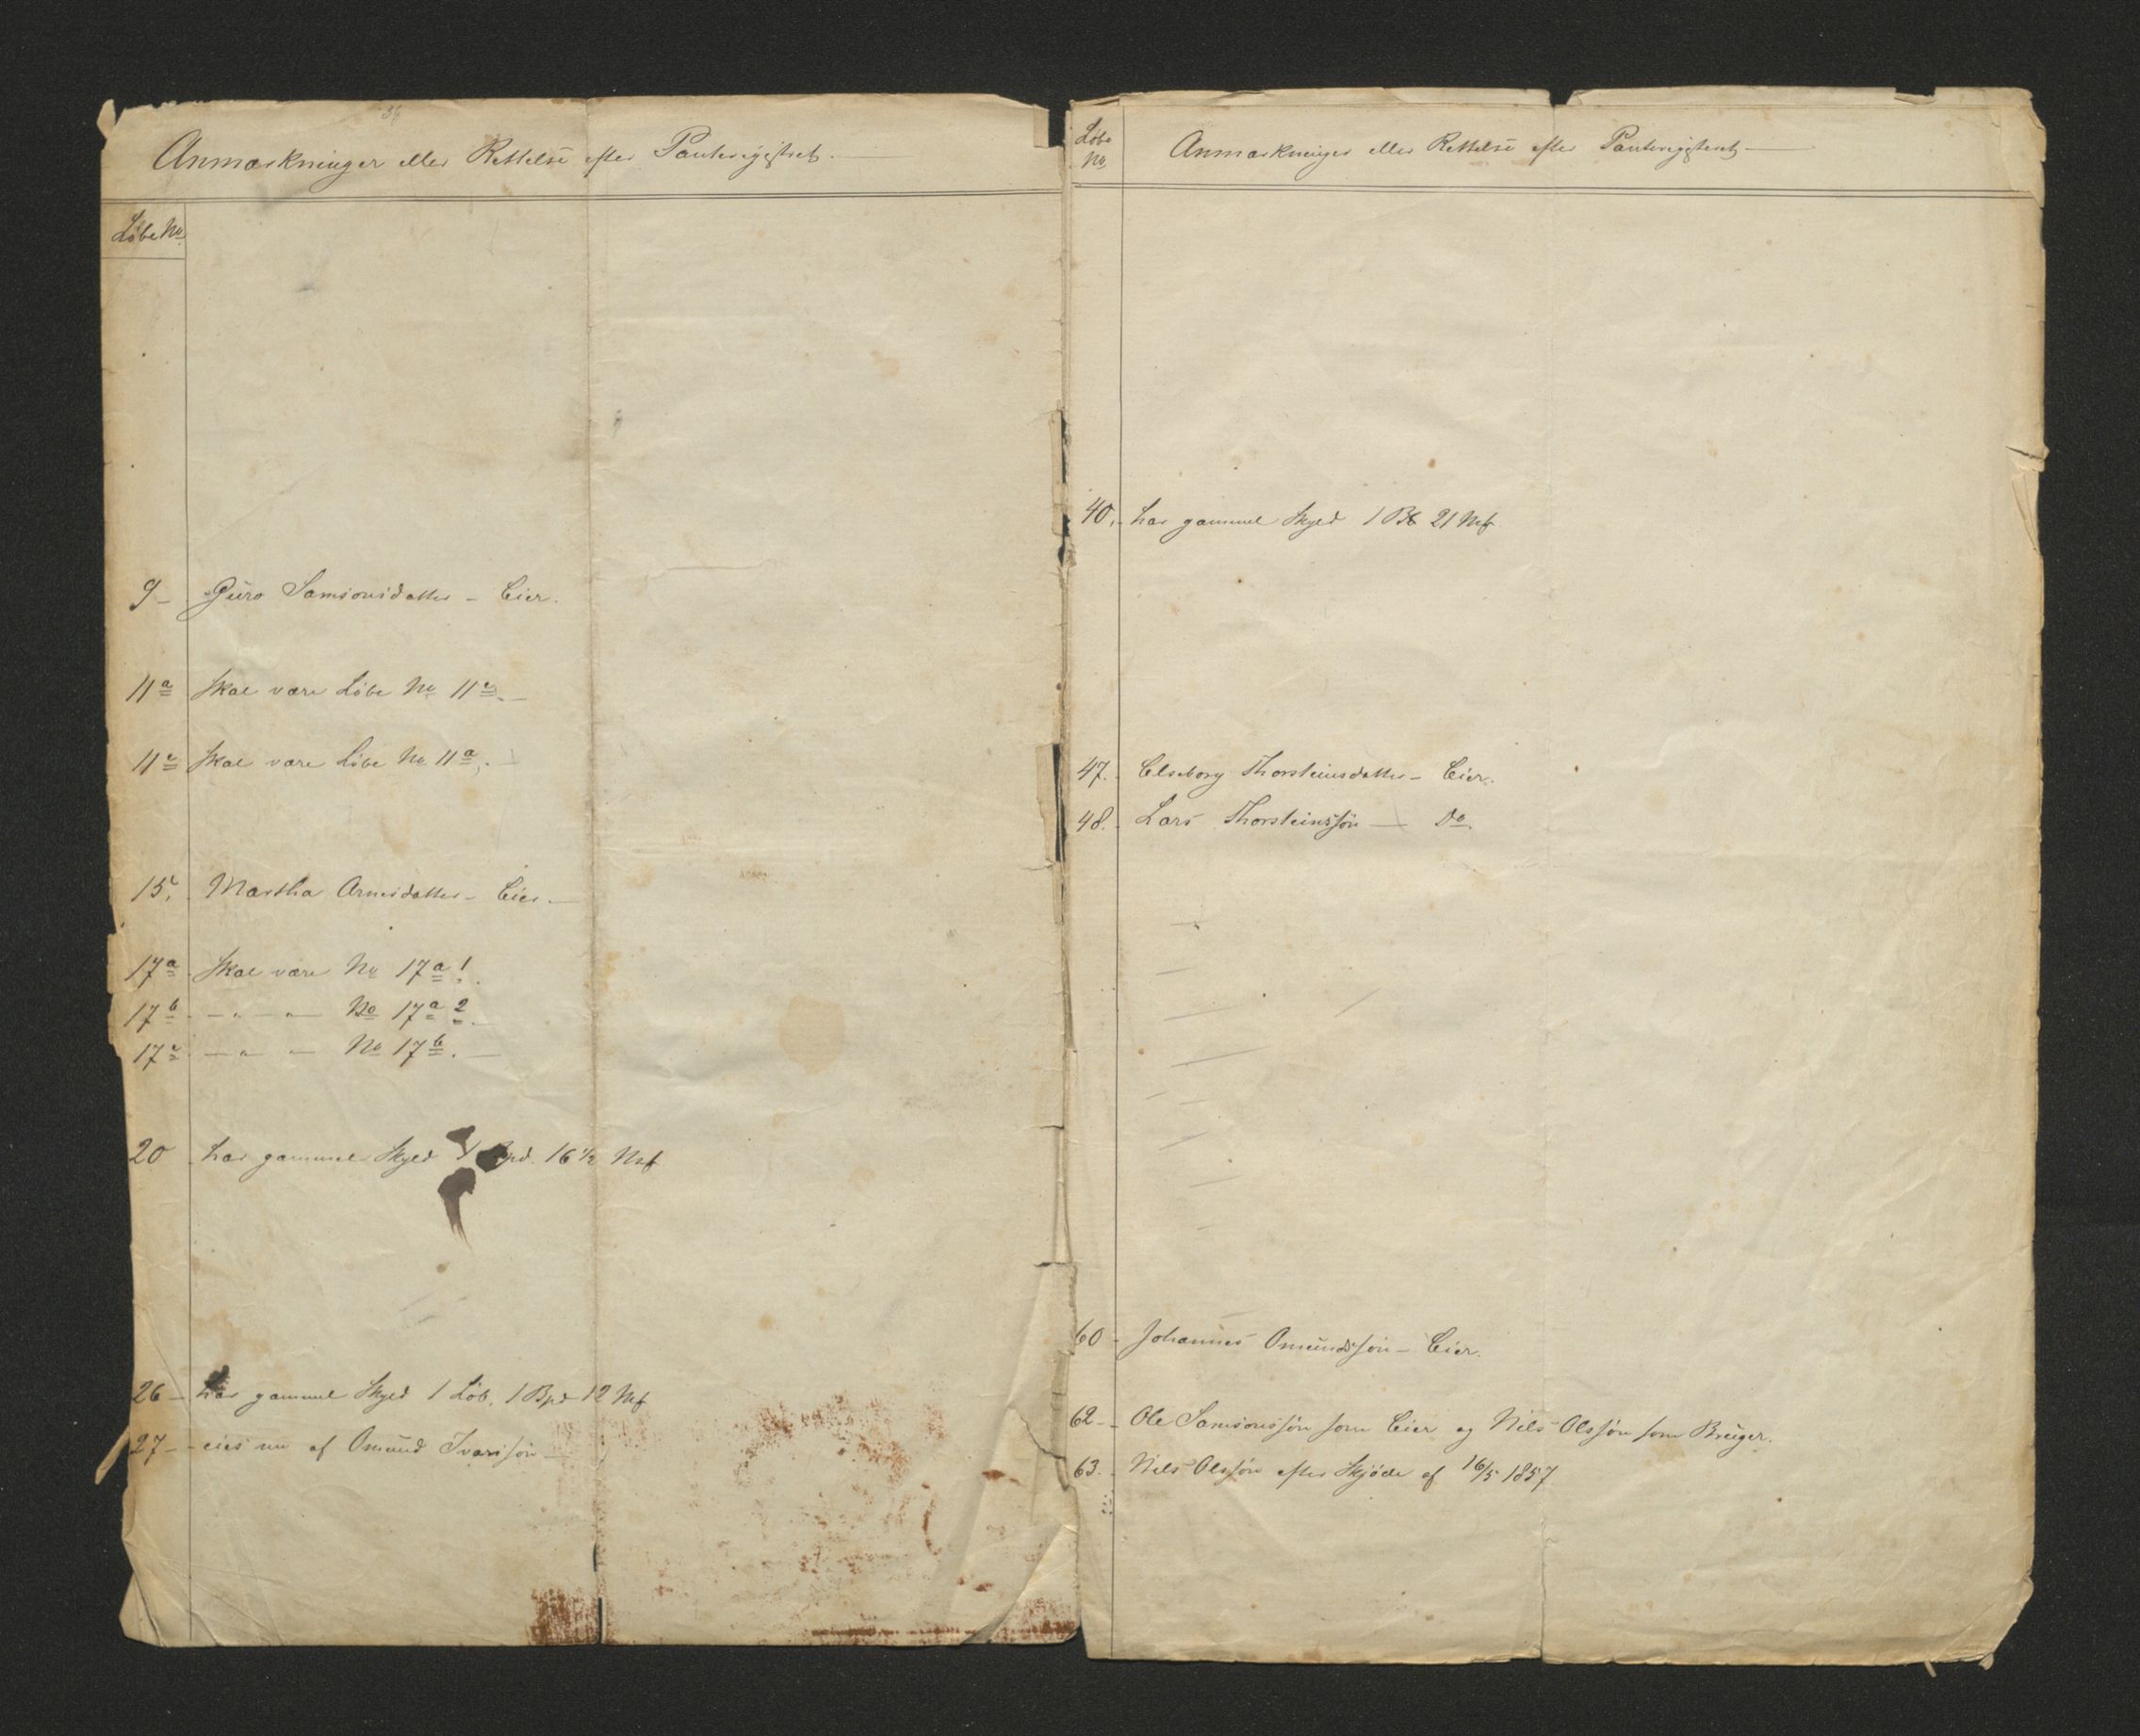 Anmærkninger eller Rettelse efter Panteregistret.
Löbe No
9 - Guro Samsonsdatter - Eier.
11a Skal være Löbe No 11c. -
11c Skal være Löbe No 11a. -
15. Martha Arnesdatter - Eier. -
17a Skal være No 17a 1.
17b - " - " - No 17a 2. -
17c - " - No 17b. -
20 har gammel Skyld 1 Bpd. 16½ Mrk
26 - har gammel Skyld 1 Löb, 1 Bpd 12 Mrk
27 - eies nu af Omund Ivarssön -
Löbe No Anmærkninger eller Rettelse efter Panteregisteret -
40. har gammel Skyld 1 B 21 Mrk
47. Elseborg Thorsteinsdatter - Eier.
48. Lars Thorsteinssön - Do.
60 - Johannes Omundssön - Eier.
62 - Ole Samsonssön som Eier og Nils Olssön som Bruger.
63. Nils Olssön efter Skjöde af 16/5 1857